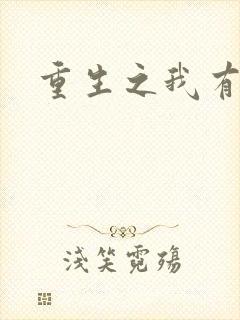 重生之我有
浅笑霓殇